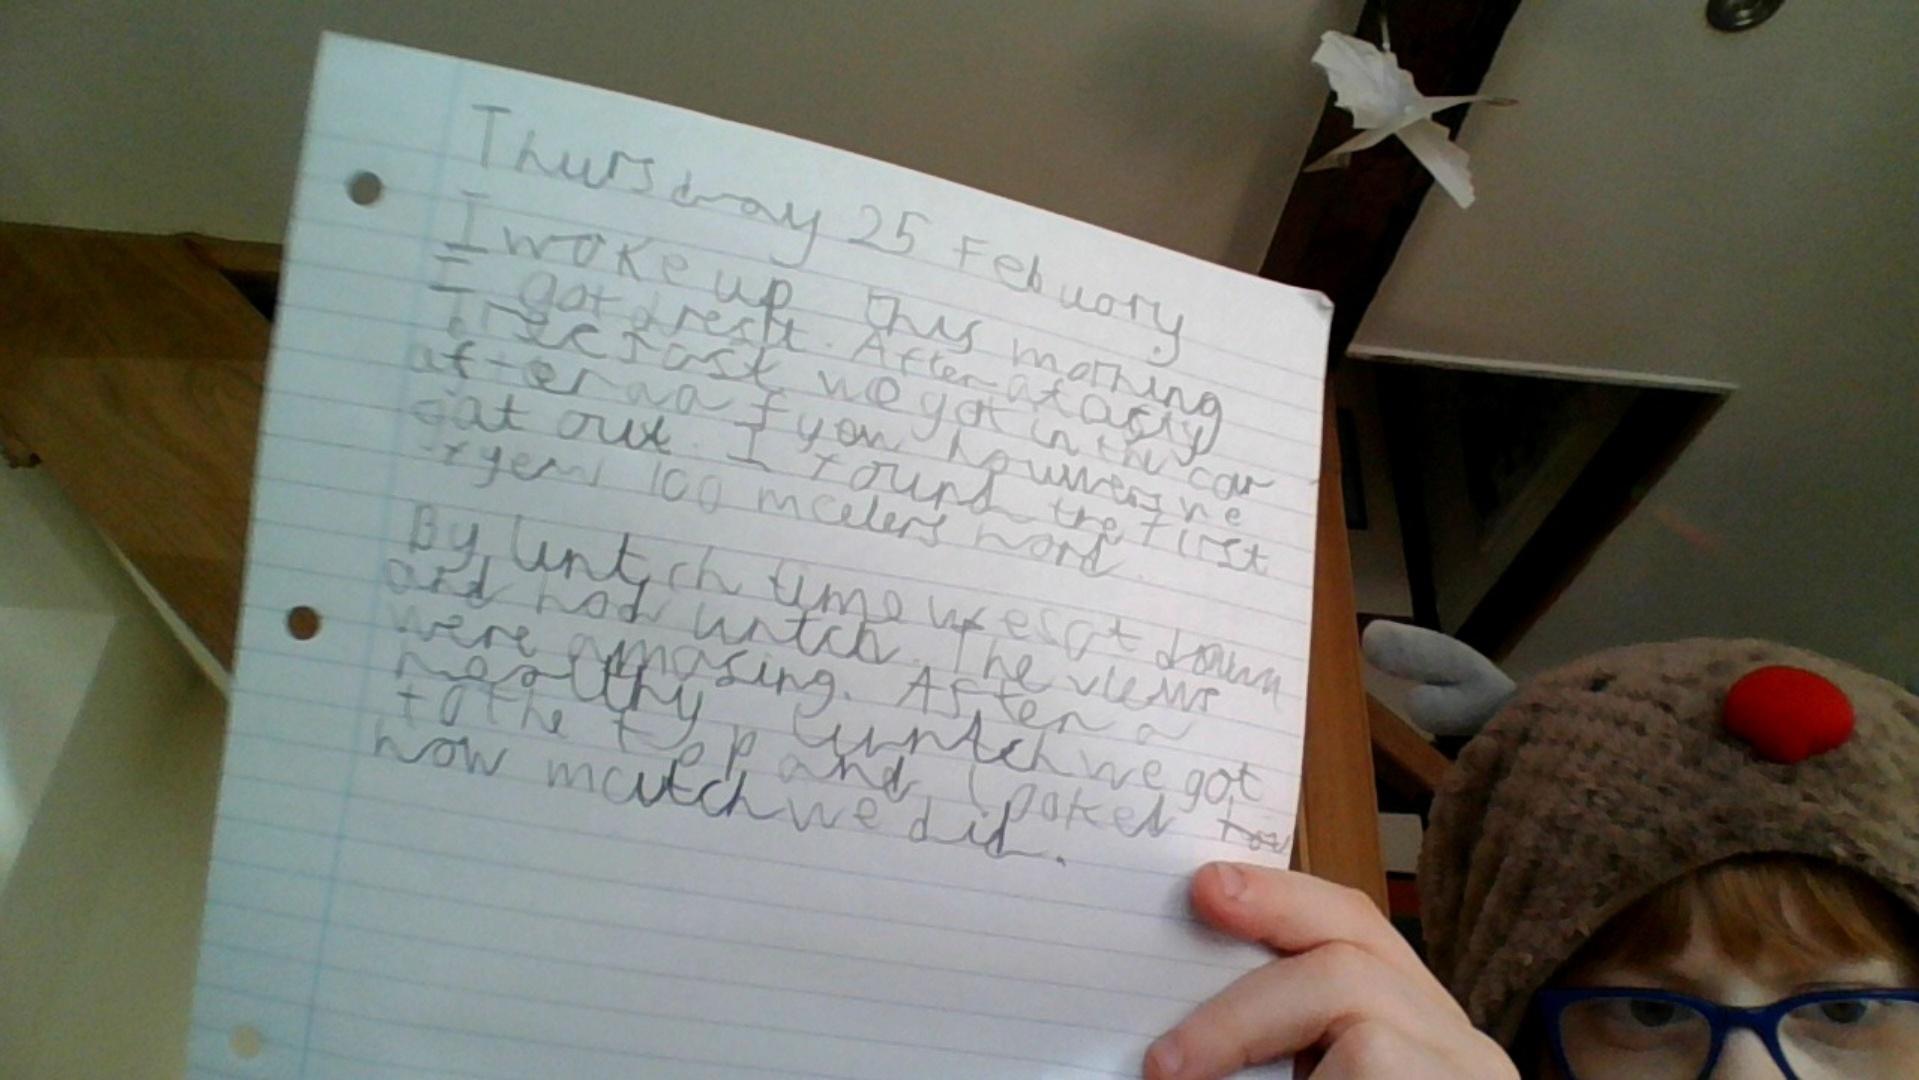 Thursday 25 Febuary
I woke up this morning
I got dresst. After a tasty
brecfast we got in the car
after a a f you howwers we
gat out. I found the first
100 meeters hard.
By luntch time we sat down
and had luntch. The views
were amasing. After a
healthy luntch we got
to the top and looked
how mutch we did.